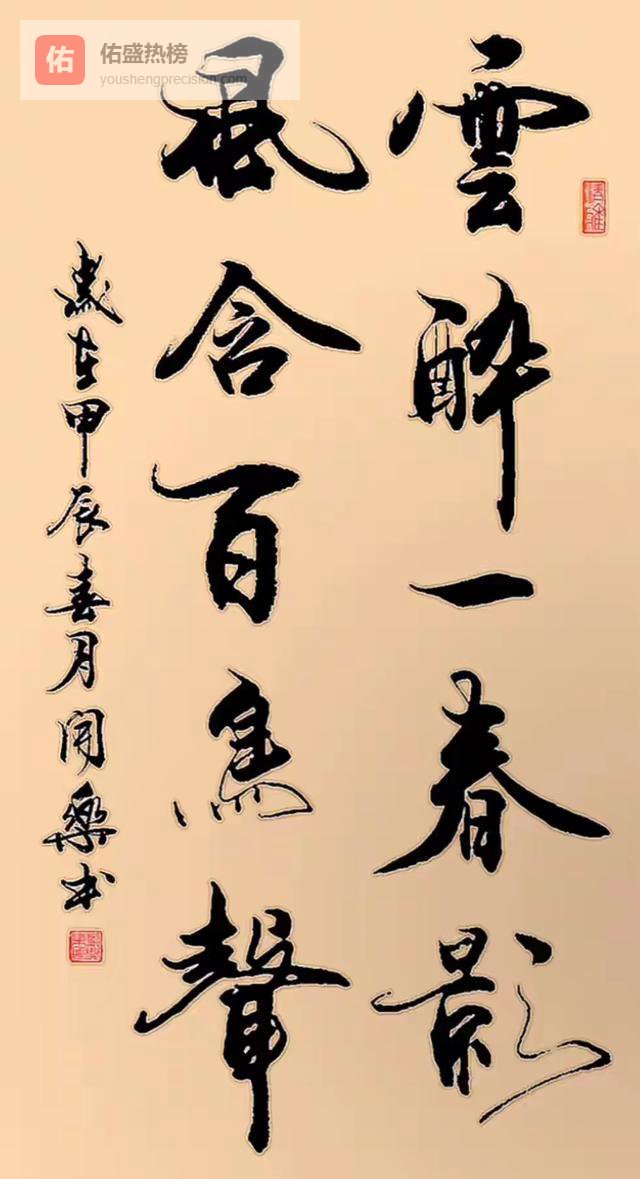 佑
佑盛热榜
youshengprecision.com
雲醉一春影
風含百鳥聲
歲在甲辰春月開樂书